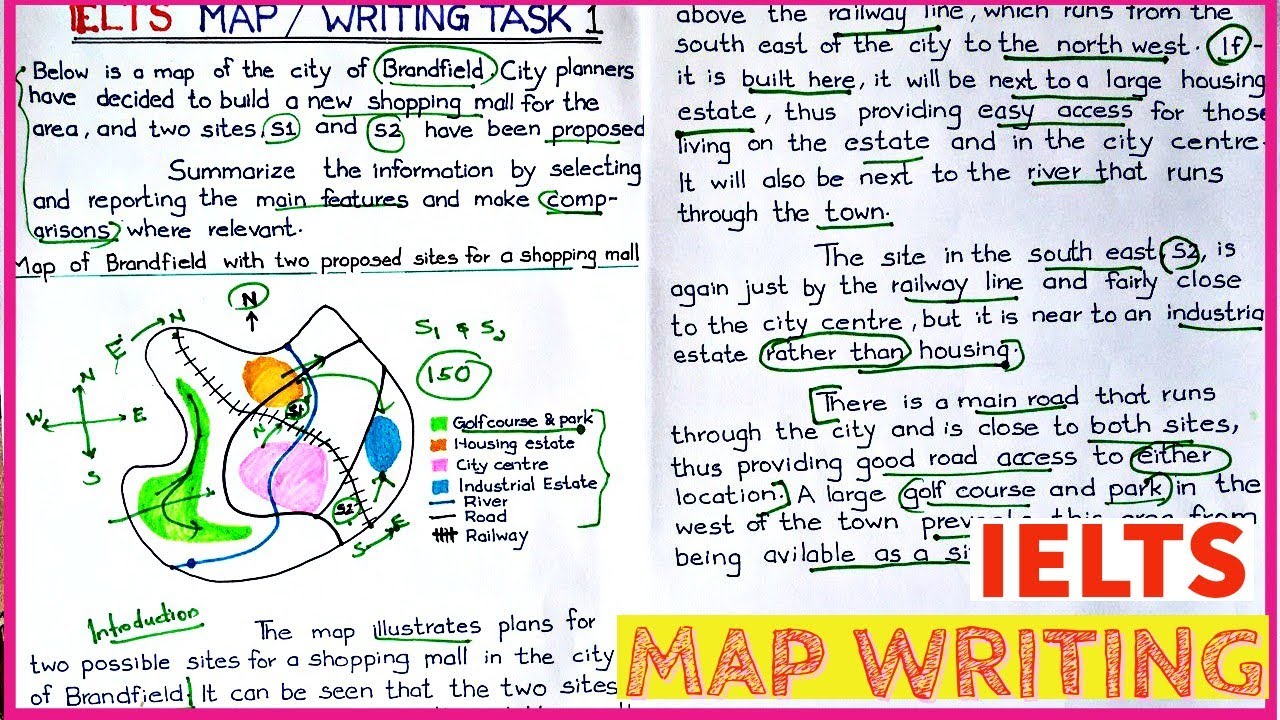 IELTS MAP / WRITING TASK 1
Below is a map of the city of Brandfield. City planners
have decided to build a new shopping mall for the
area, and two sites, S1 and S2 have been proposed
Summarize the information by selecting
and reporting the main features and make comp-
arisons where relevant.
Map of Brandfield with two proposed sites for a shopping mall
N
E N
N
W E
S
S1
N
S2
S E
S1 & S2
150
Golf course & park
Housing estate
City centre
Industrial Estate
River
Road
Railway
Introduction
The map illustrates plans for
two possible sites for a shopping mall in the city
of Brandfield. It can be seen that the two sites
above the railway line, which runs from the
south east of the city to the north west. If
it is built here, it will be next to a large housing
estate, thus providing easy access for those
living on the estate and in the city centre.
It will also be next to the river that runs
through the town.
The site in the south east, S2, is
again just by the railway line and fairly close
to the city centre, but it is near to an industria
estate rather than housing.
There is a main road that runs
through the city and is close to both sites,
thus providing good road access to either
location. A large golf course and park in the
west of the town this area from
being avilable as a
IELTS
MAP WRITING